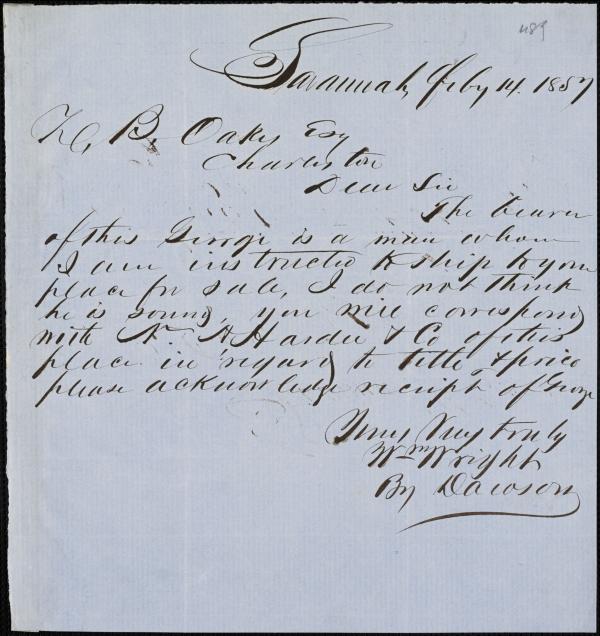 489
Savannah, Feby 14. 1857
Z. B. Oakes Esq
Charleston
Dear Sir
The bearer
of this George is a man whom
I am instructed to ship to your
place for sale, I do not think
he is sound, you will correspond
with N. A Hardee & Co of this
place in regard to title & price
please acknowledge receipt of George
Yours Very truly
Wm Wright
By Dawson